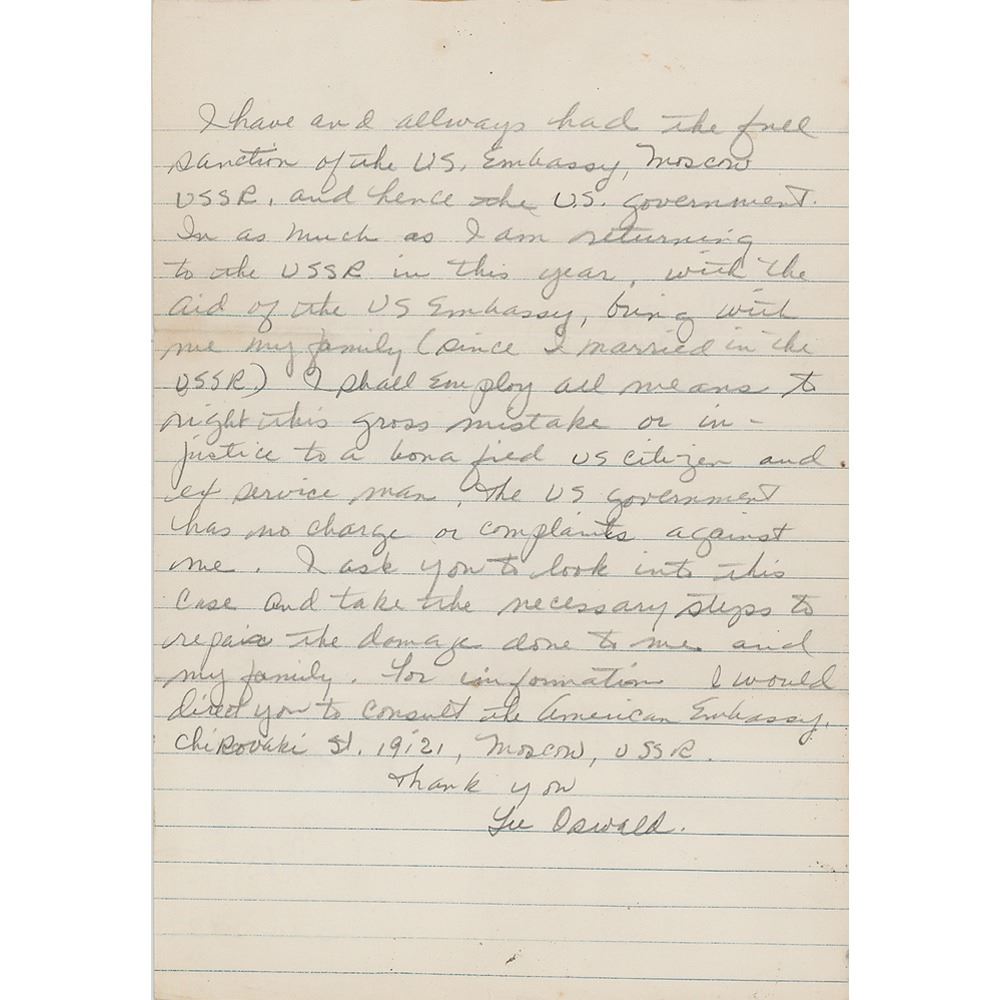 I have and allways had the full
sanction of the US. Embassy, Moscow
USSR, and hence the U.S. government.
In as much as I am returning
to the USSR in this year, with the
aid of the US Embassy, bring with
me my family (since I married in the
USSR) I shall employ all means to
right this gross mistake or in-
justice to a bona fied US citizen and
ex service man, The US government
has no charge or complaints against
me. I ask you to look into this
case and take the necessary steps to
repair the damage done to me and
my family. For information I would
direct you to consult the American Embassy,
Chikovaki St. 19/21, Moscow, USSR.
Thank you
Lee Oswald.